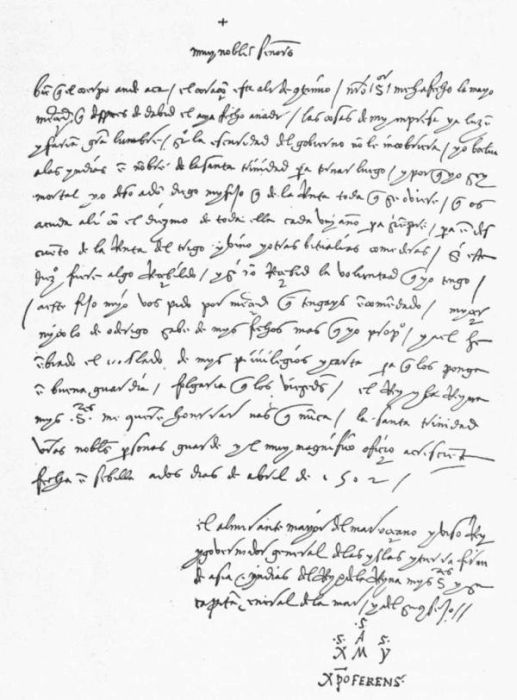 +
muy nobles señores
bien q̃ el cuerpo ande aca / el coraçõ esta ali de cõtinuo / nrõ sõr me ha fecho la mayor
merçed q̃ despues de dabid el aya fecho a nadi / las cosas de my impresa ya luzẽ
y farian grã lumbre / si la escuridad del gobierno nõ le incobriera / yo buelvo
a las yndias ẽ nõbre de la santa trinidad pa tornar luego / y por q̃ yo soy
mortal yo dexo a dõ diego my fijo q̃ de la Renta toda q̃ se oviere / q̃ os
acuda ali cõ el diezmo de toda ella cada un año pa siẽpre / pa ẽ des
cuento de la Renta del trigo y vino y otras bitualias comederas / si este
diezº fuere algo Reçebildo / y si nõ Reçebid la voluntad q̃ yo tengo /
a este fijo myo vos pido por merçed q̃ tengays ẽcomẽdado / miçer
nicolo de oderigo sabe de mys fechos mas q̃ yo propº / y a el he
ẽbiado el traslado de mys privilegios y carta pa q̃ los ponga
ẽ buena guardia / folgaria q̃ los viesedes / el Rey y la Reyna
mys sres me quierẽ honrrar mas q̃ nũca / la santa trinidad
vras nobles personas guarde y el muy magnifico ofiçio acresciente
fecha ẽ sebilla a dos dias de abril de 1502 /
el almirante mayor del mar oceano y viso Rey
y governador general de las yslas y tierra firme
de asia e yndias del Rey e de la Reyna mys sres y su
capitã general de la mar / y del su cõsejo //
.s.
.s. A s.
X M y
Xp̃oFERENS